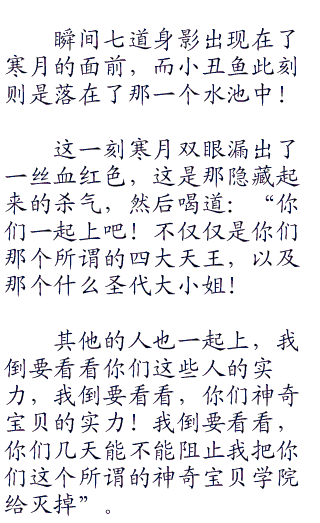 瞬间七道身影出现在了
寒月的面前，而小丑鱼此刻
则是落在了那一个水池中！
这一刻寒月双眼漏出了
一丝血红色，这是那隐藏起
来的杀气，然后喝道：“你
们一起上吧！不仅仅是你们
那个所谓的四大天王，以及
那个什么圣代大小姐！
其他的人也一起上，我
倒要看看你们这些人的实
力，我倒要看看，你们神奇
宝贝的实力！我倒要看看，
你们几天能不能阻止我把你
们这个所谓的神奇宝贝学院
给灭掉”。